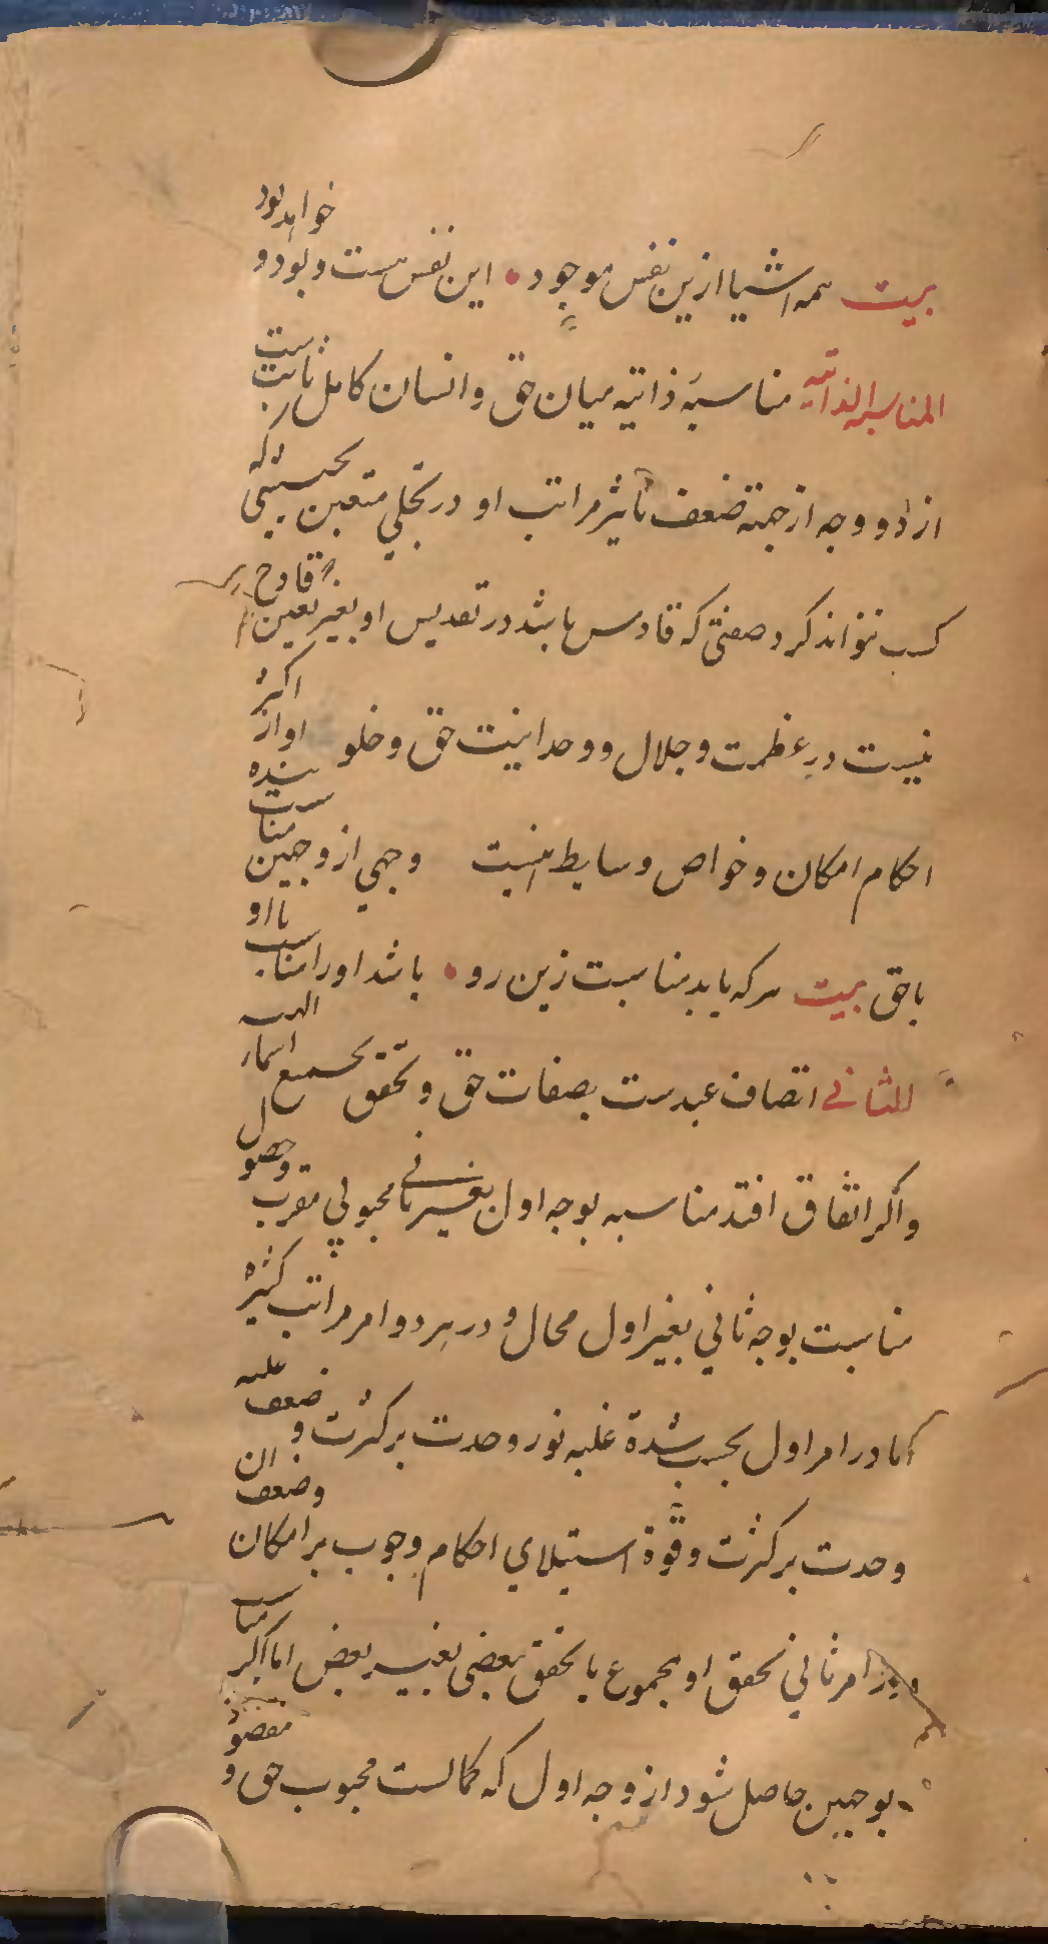 بیت همه اشیا ازین نفس موجود • این نفس هست و بود و خواهد بود
المناسبة الذاتیه مناسبهٔ ذاتیه میان حق و انسان کامل ثابتست
از دو وجه از جهة ضعف تأثیر مراتب او در تجلی متعین بحیثیتی که
کسب نتواند کرد صفتی که قادس باشد در تقدیس او بغیر تعین قادح
نیست در عظمت و جلال و وحدانیت حق و خلو او از اکثر
احکام امکان و خواص وسایط اینست وجهی از وجهین مناسبت
با حق بیت هر که یابد مناسبت زین رو • باشد او را مناسب با او
الثانی اتصاف عبدست بصفات حق و تحقق بجمیع اسماء الهیه
و اگر اتفاق افتد مناسبه بوجه اول بغیر ثانی محبوبی مقرب و حصول
مناسبت بوجه ثانی بغیر اول محال و در هر دو امر مراتب کثیره
اما در امر اول بحسب شدة غلبه نور وحدت بر کثرت و ضعف غلبه
وحدت بر کثرت و قوة استیلای احکام وجوب بر امکان و ضعف ان
و در امر ثانی تحقق او بمجموع یا تحقق بعضی بغیر بعض اما اگر مناسبت
بوجهین حاصل شود از وجه اول که کمالست محبوب حق و مقصود